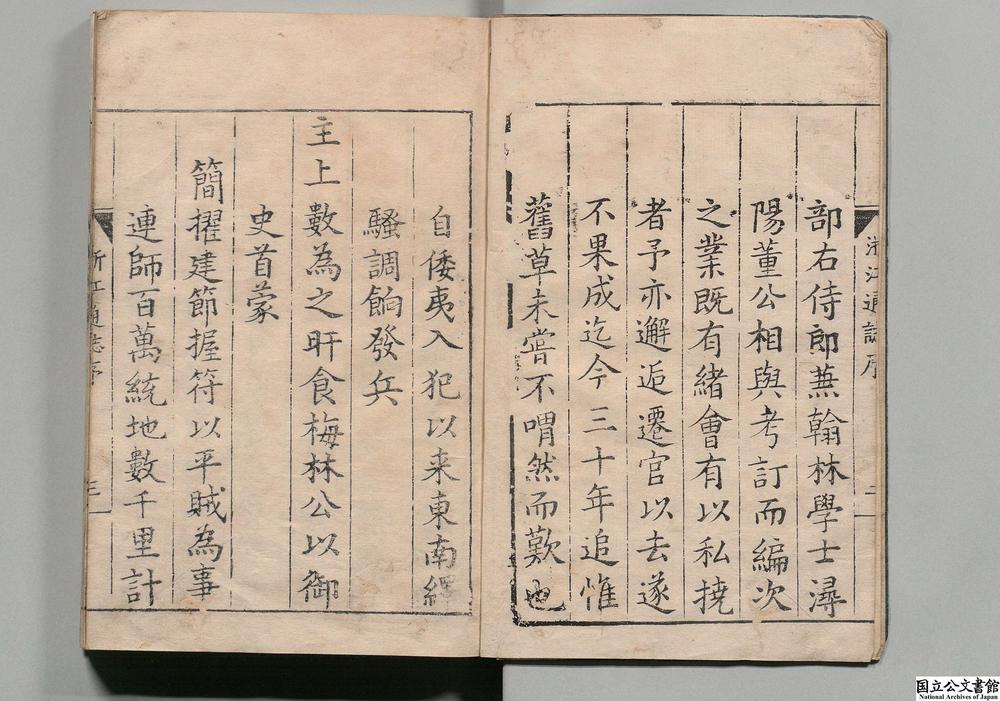 浙江通誌序
二
部右侍郎蕪翰林學士潯
陽董公相與考訂而編次
之業既有緒會有以私撓
者予亦邂逅遷官以去遂
不果成迄今三十年追惟
舊草未嘗不喟然而歎也
自倭夷入犯以来東南繹
騷調餉發兵
主上數為之旰食梅林公以御
史首蒙
簡擢建節握符以平賊為事
連師百萬統地數千里計
浙江通誌序
三
国立公文書館
National Archives of Japan